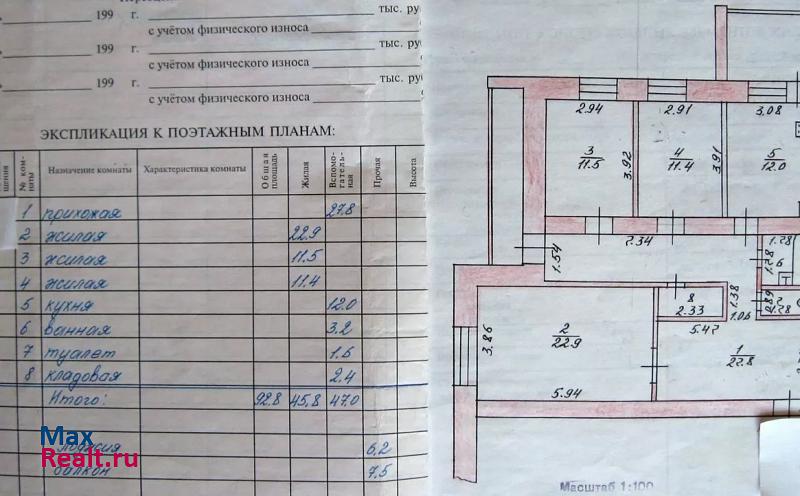 199 г. тыс. ру
с учётом физического износа
199 г. тыс. ру
с учётом физического износа
199 г. тыс. руб
с учётом физического износа
ЭКСПЛИКАЦИЯ К ПОЭТАЖНЫМ ПЛАНАМ:
№ ком- наты Назначение комнаты Характеристика комнаты Общая площадь Жилая Вспомо- гатель- ная Прочая Высота
1 прихожая 27.8
2 жилая 22.9
3 жилая 11.5
4 жилая 11.4
5 кухня 12.0
6 ванная 3.2
7 туалет 1.6
8 кладовая 2.4
Итого: 92.8 45.8 47.0
лоджия 6.2
балкон 7.5
Max
Realt.ru
2.94 2.91 3.08
3 11.5 3.92 4 11.4 3.91 5 12.0
1.54 7.34 1.28
1.28
8 2.33 1.38 1.06
5.47
3.86 2 22.9 1 27.8
5.94
Масштаб 1:100